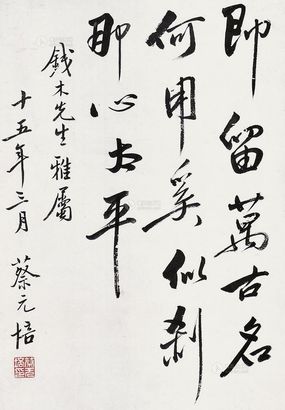 即留萬古名
何用奚似刹
那心太平
錢木先生雅屬
十五年三月 蔡元培